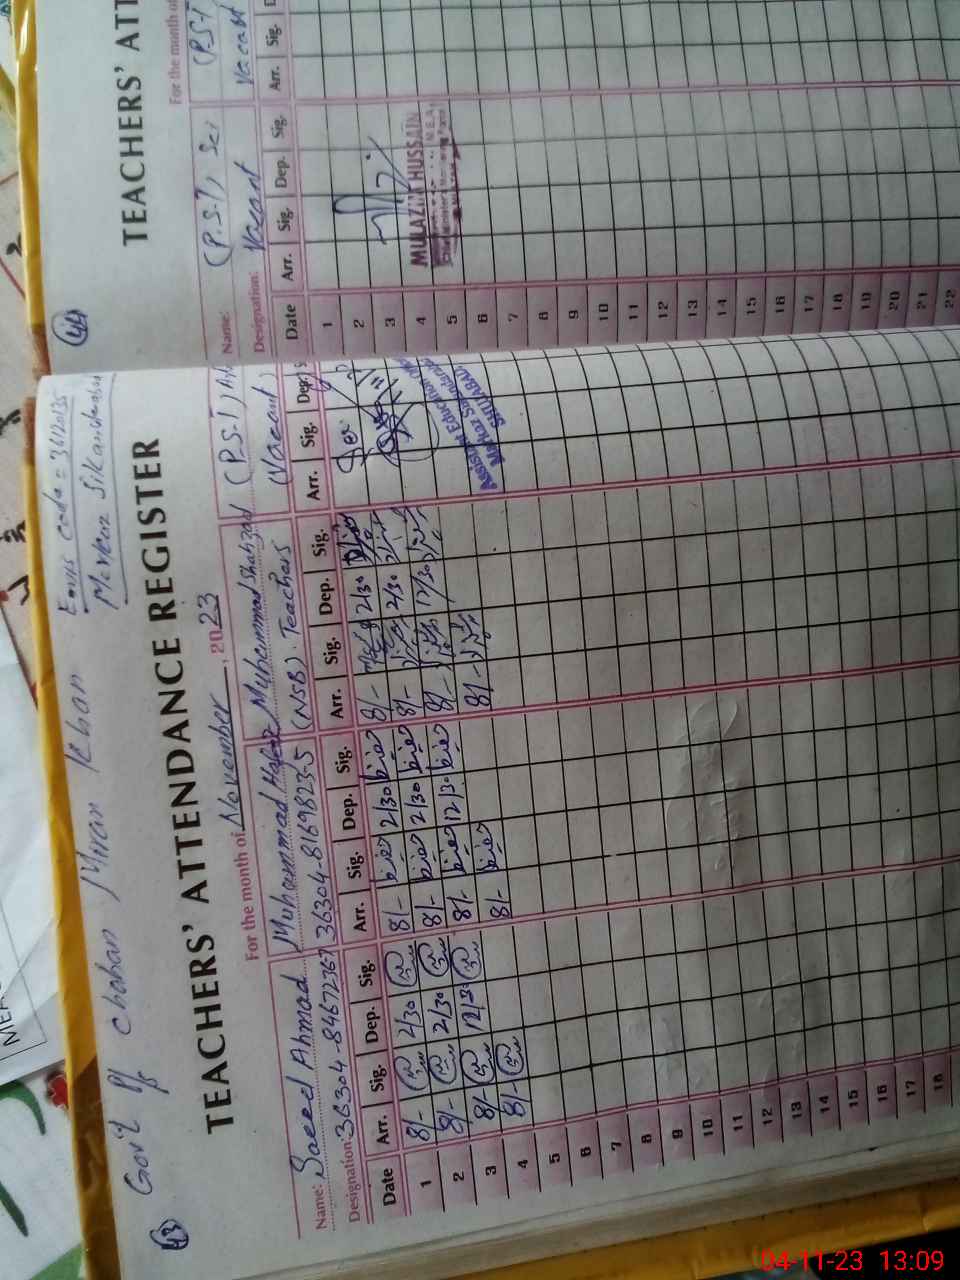 43
Gov't P/s Chohan Miran Khan
Emis code = 36120135
Markaz Sikandarabad
TEACHERS' ATTENDANCE REGISTER
For the month of November, 2023
Name: Saeed Ahmad Muhammad Hafeez Muhammad Shahzad (P.S.T)
Designation: 36304-8467236-7 36304-8169823-5 (NSB) Teachers (Vacant)
Date Arr. Sig. Dep. Sig. Arr. Sig. Dep. Sig. Arr. Sig. Dep. Sig. Arr. Sig. Dep.
1 8/- 2/30 8/- 2/30 8/- 2/30
2 8/- 2/30 8/- 2/30 8/- 2/30
3 8/- 12/30 8/- 12/30 8/- 12/30
4 8/- 8/- 8/-
5
6
7
8
9
10
11
12
13
14
15
16
17
18
Assistant Education
Markaz
SHUJABAD
44
TEACHERS' ATT
For the month of
Name: (P.S.T) (P.S.T)
Designation: Vacant Vacant
Date Arr. Sig. Dep. Sig. Arr. Sig.
1
2
3
4
5
6
7
8
9
10
11
12
13
14
15
16
17
18
19
20
21
22
MULAZIM HUSSAIN
04-11-23 13:09